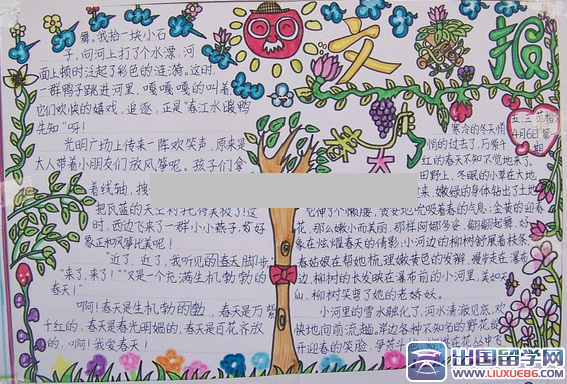 文
报
春天
五.三 范楷
4月6日 第一期
寒冷的冬天悄
悄的过去了,万紫千
红的春天不知不觉地来了。
田野上,冬眠的小草在大地
来,嫩绿的身体钻出了土地
它伸了个懒腰,贪婪地吮吸着春的气息;金黄的迎春
花,那么嫩小而美丽,那样婀娜多姿,翩翩起舞,好
象在炫耀春天的倩影;小河边的柳树舒展着枝条,
春姑娘在帮她梳理嫩黄的发辫,漫步走在瀑布
边,柳树的长发映在瀑布前的小河里,美如天
仙,柳树笑弯了她的老娇妖。
小河里的雪水融化了,河水清澈见底,欢
快地向前流趟,岸边各种不知名的野花绽
开迎春的笑脸,争芳斗
在花丛中飞
舞。我拾一块小石
子,向河上打了个水漂,河
面上顿时泛起了彩色的涟漪。这时,
一群鸭子跳进河里,嘎嘎嘎的叫着
它们欢快的嬉戏,追逐,正是“春江水暖鸭
先知”呀!
光明广场上传来一阵欢笑声,原来是
大人带着小朋友们放风筝呢。孩子们拿
着线轴,拽
把瓦蓝的天空衬托得美极了!这
时,西边飞来了一群小小燕子,好好
象正和风筝比美呢!
“近了,近了,我听见的春天脚步”
“来了,来了!”“又是一个充满生机勃勃的
春天!”
啊!春天是生机勃的勃,春天是万紫
千红的,春天是春光明媚的,春天是百花齐放
的.啊!我爱春天!
出国留学网
WWW.LIUXUE86.COM